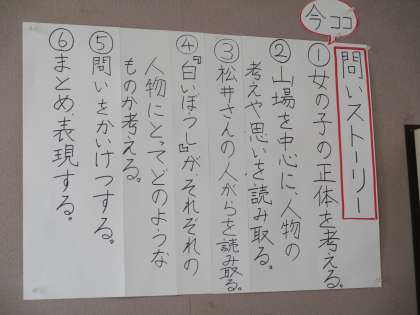 今ココ
問いストーリー
①女の子の正体を考える。
②山場を中心に、人物の
考えや思いを読み取る。
③松井さんの人がらを読み取る。
④『白いぼうし』が、それぞれの
人物にとってどのような
ものか考える。
⑤問いをかいけつする。
⑥まとめ、表現する。